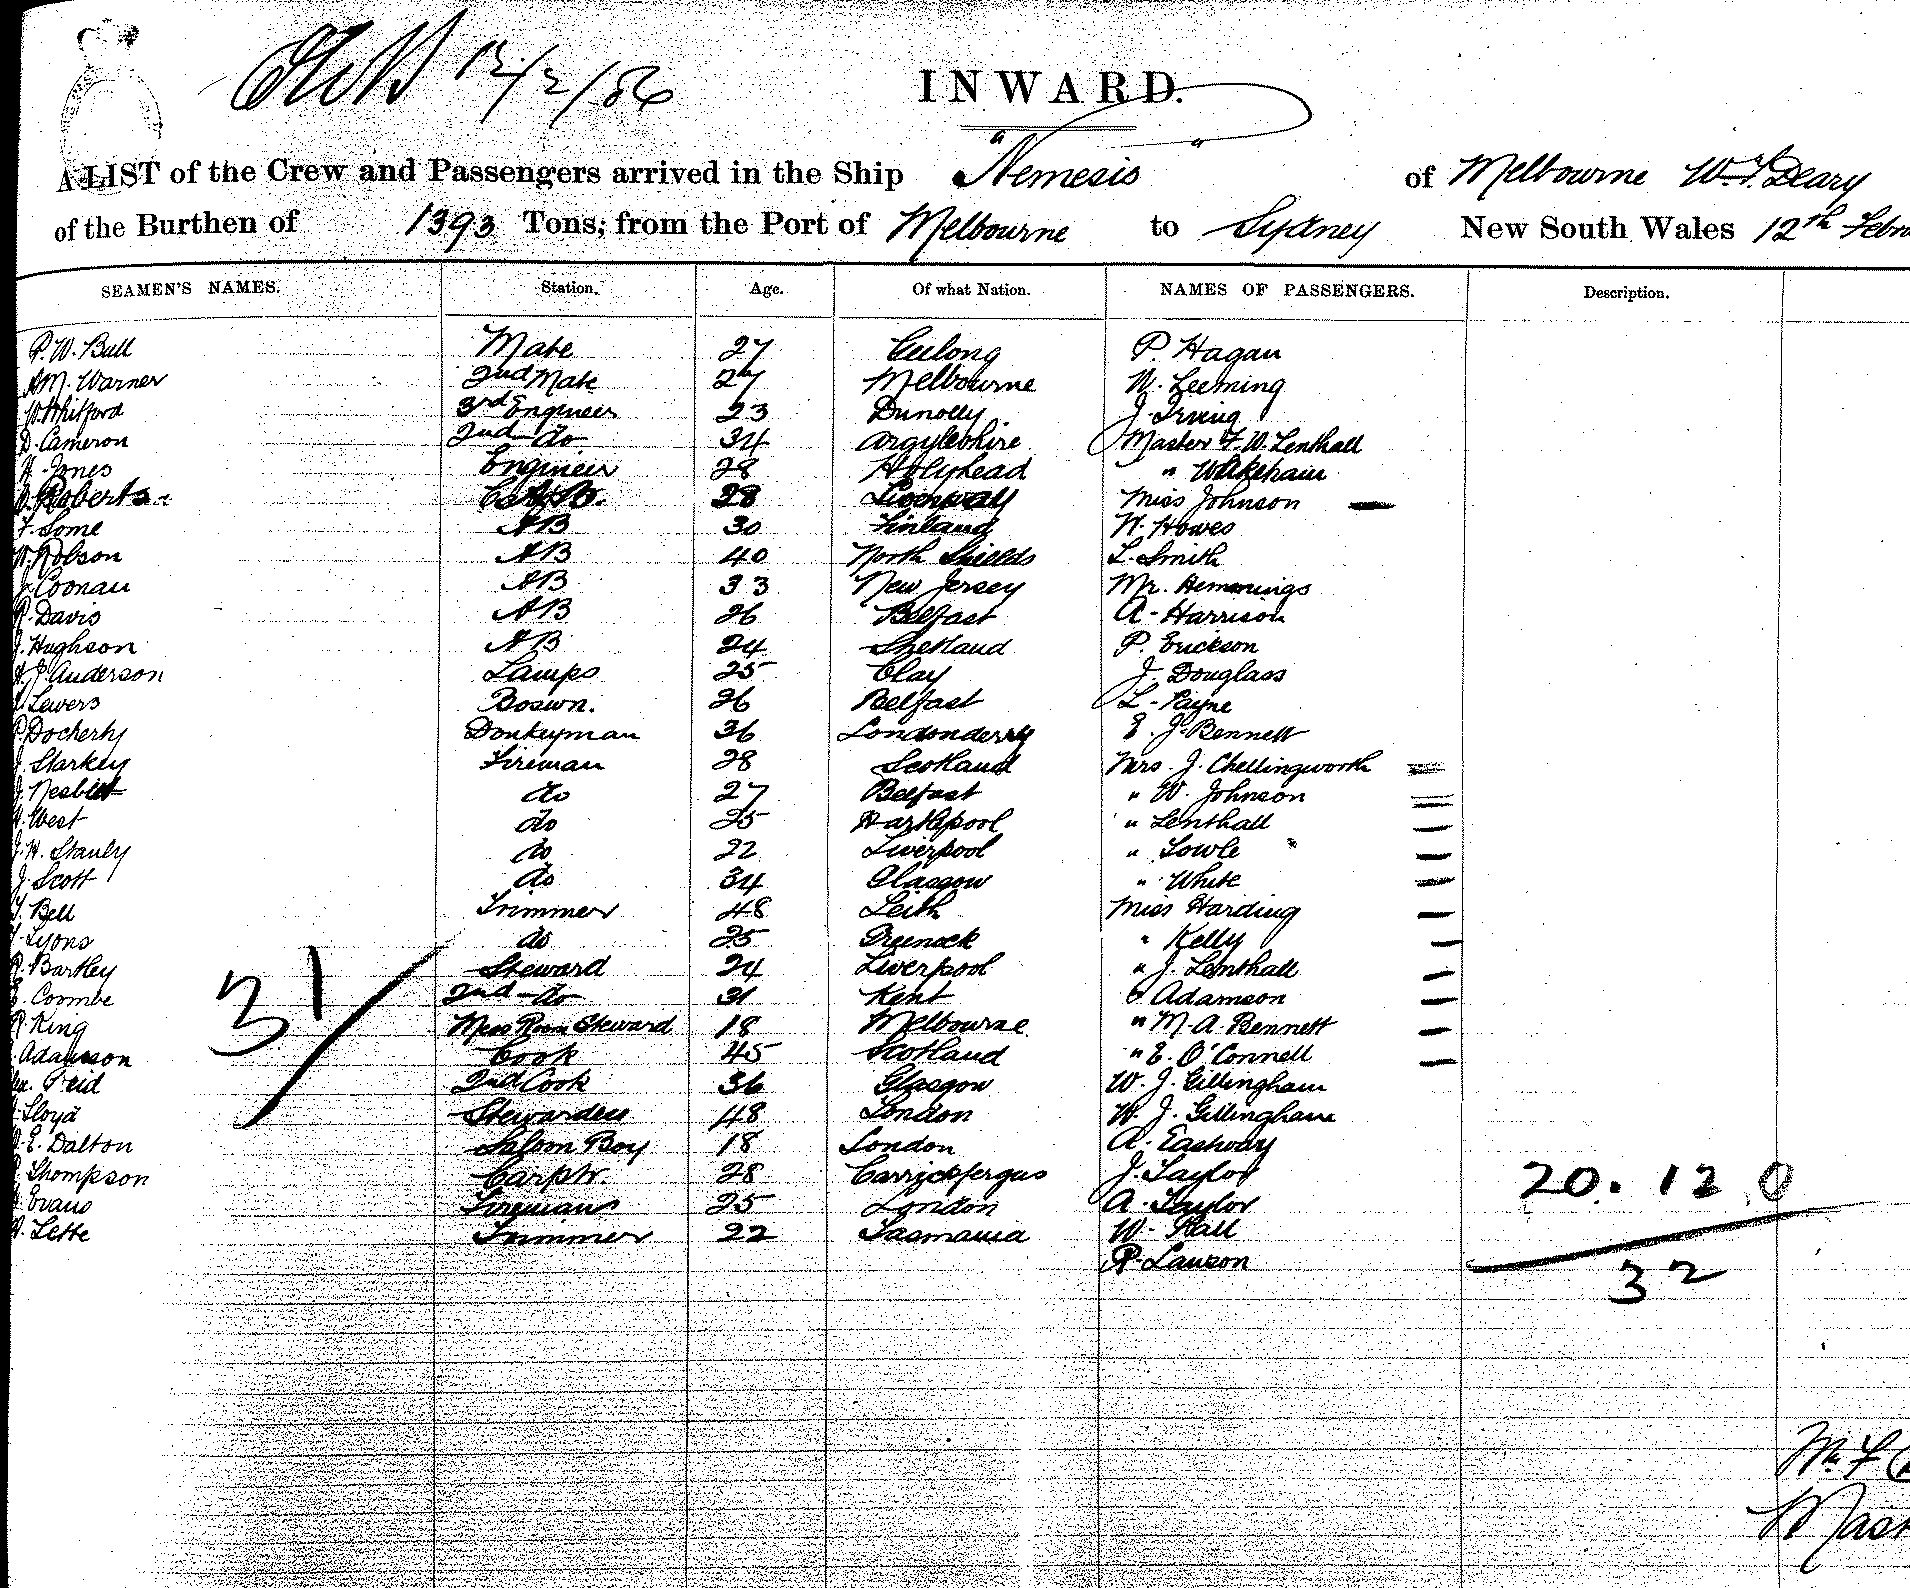 12/2/86
INWARD.
A LIST of the Crew and Passengers arrived in the Ship "Nemesis" of Melbourne W. F. Deary
of the Burthen of 1393 Tons, from the Port of Melbourne to Sydney New South Wales 12th Febru
SEAMEN'S NAMES. Station. Age. Of what Nation. NAMES OF PASSENGERS. Description.
P. W. Bull Mate 27 Geelong P. Hagan
A M. Warner 2nd Mate 27 Melbourne W. Leeming
W. Whitford 3rd Engineer 23 Dunolly J. Irving
D. Cameron 2nd do 34 Argyleshire Master F. W. Lenthall
H. Jones Engineer 28 Holyhead " Wakeham
Roberts 28 Miss Johnson
F. Some AB 30 Finland N. Howes
W. Robson AB 40 North Shields L. Smith
J. Coonan AB 33 New Jersey Mr. Hemmings
R. Davis AB 26 Belfast A. Harrison
J. Hughson AB 24 Shetland P. Erickson
H. J. Anderson Lamps 25 Clay J. Douglass
J. Lewers Boswn. 26 Belfast L. Payne
P. Docherty Donkeyman 36 Londonderry E. J. Bennett
J. Starkey Fireman 28 Scotland Mrs. J. Chellingworth
J. Nesbitt do 27 Belfast " W. Johnson
West do 25 Hartlepool " Lenthall
J. H. Stanly do 22 Liverpool " Lowle
J. Scott do 34 Glasgow " White
T. Bell Trimmer 48 Leith Miss Harding
Lyons do 25 Greenock " Kelly
R. Bartley Steward 24 Liverpool " J. Lenthall
E. Coombe 2nd do 31 Kent " Adamson
R. King Mess Room Steward 18 Melbourne " M. A. Bennett
Adamson Cook 45 Scotland " E. O'Connell
Alex. Reid 2nd Cook 36 Glasgow W. J. Gillingham
Lloyd Stewardess 48 London W. J. Gillingham
E. Dalton Saloon Boy 18 London A. Eastway
Thompson Carptr. 28 Carrickfergus J. Taylor
Evans Firemans 25 London A. Taylor
W. Lette Trimmer 22 Tasmania W. Hall
R. Lawson
31
20. 12 0
32